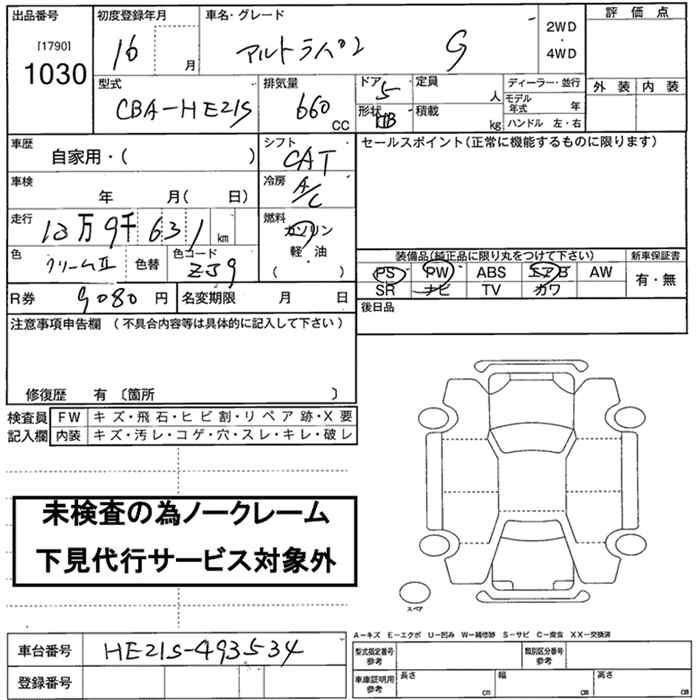 出品番号 初度登録年月 車名・グレード 2WD ・ 4WD 評価点
[1790] 1030 16 月 アルトラパン G 外装 内装
型式 排気量 ドア 5 定員 人 ディーラー・並行
CBA-HE21S 660 CC 形状 HB 積載 kg モデル年式 年
ハンドル 左・右
車歴 自家用・( ) シフト CAT セールスポイント(正常に機能するものに限ります)
車検 年 月( 日) 冷房 A/C
走行 13万9千631 km 燃料 ガソリン 軽・油 ( )
色 クリームII 色替 色コード ZJ9
装備品(純正品に限り丸をつけて下さい) 新車保証書
PS PW ABS エアB AW 有・無
SR ナビ TV カワ
R券 9080 円 名変期限 月 日
後日品
注意事項申告欄 (不具合内容等は具体的に記入して下さい)
修復歴 有 〔箇所 〕
検査員 FW キズ・飛石・ヒビ割・リペア跡・X要
記入欄 内装 キズ・汚レ・コゲ・穴・スレ・キレ・破レ
未検査の為ノークレーム
下見代行サービス対象外
スペア
A－キズ E－エクボ U－凹み W－補修跡 S－サビ C－腐食 XX－交換済
車台番号 HE21S-493534
型式指定番号 参考 類別区分番号 参考
登録番号
車庫証明用 参考 長さ cm 幅 cm 高さ cm